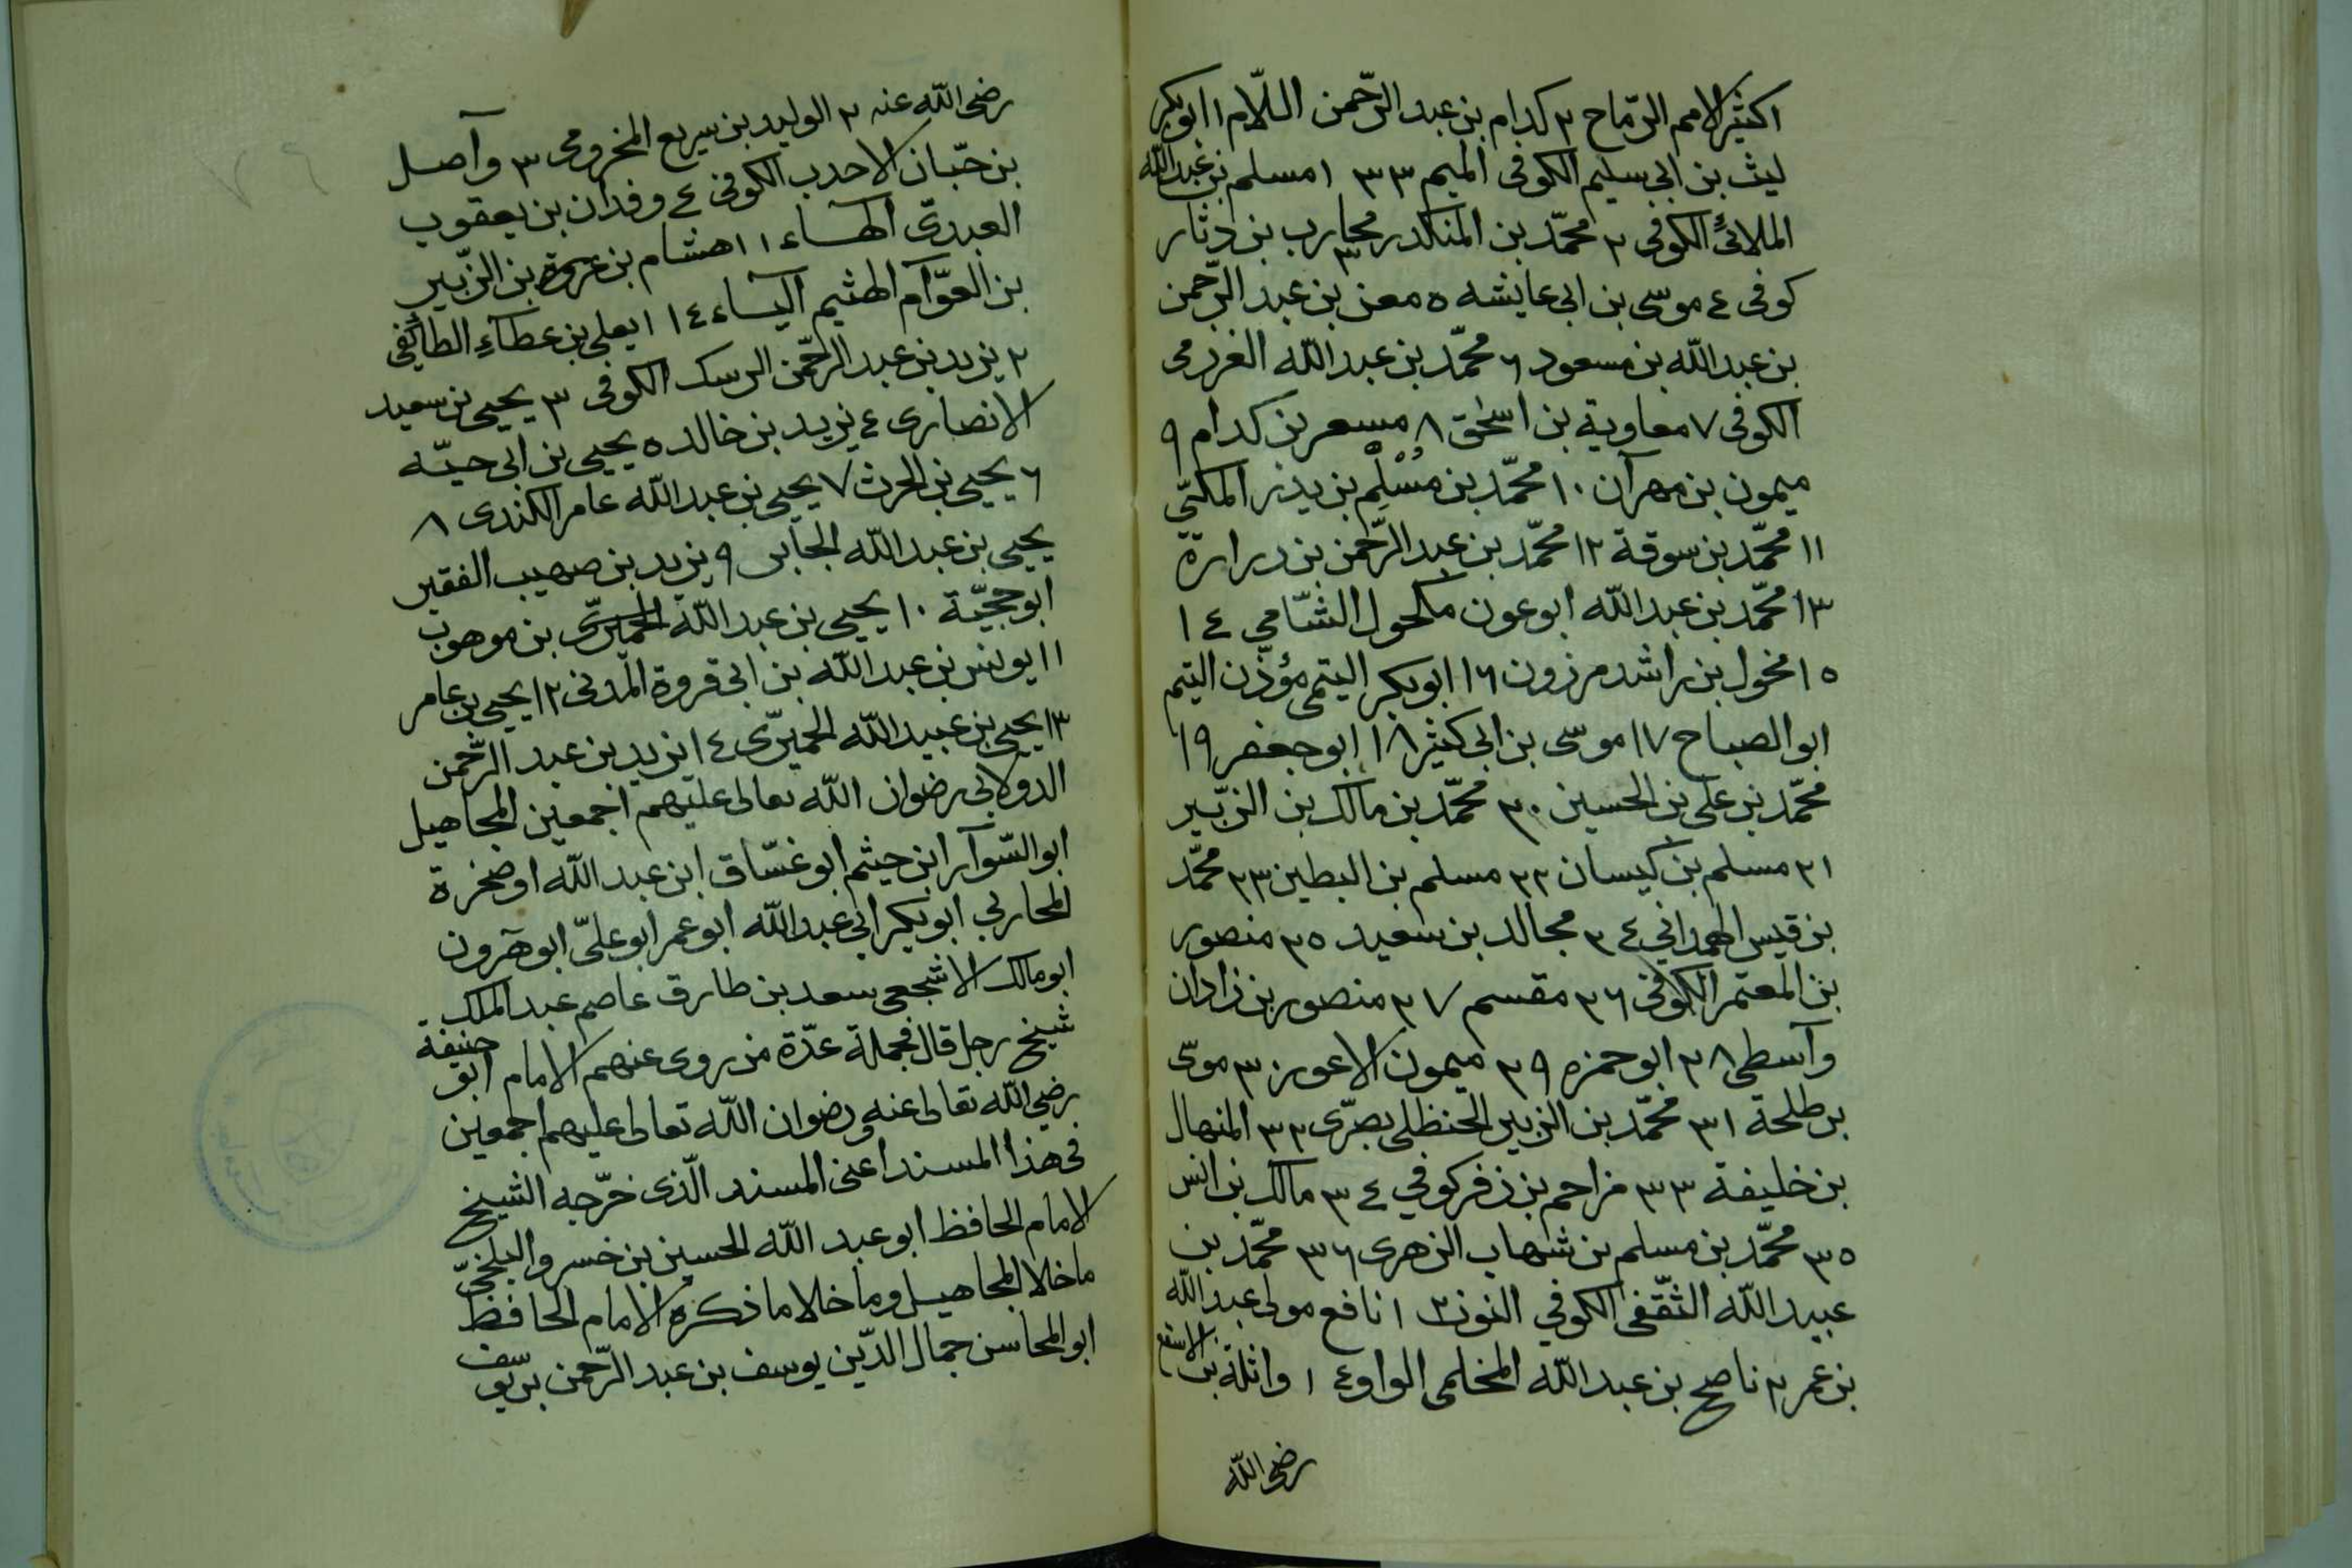 اكثير الاصم الرماح ٢ كدام بن عبد الرّحمن اللّام ١ ابوبكر
ليث بن ابي سليم الكوفى الميم ٣٣ ١ مسلم بن عبد الله
الملائىّ الكوفى ٢ محمّد بن المنكدر ٣ محارب بن دثار
كوفى ٤ موسى بن ابى عايشه ٥ معن بن عبد الرّحمن
بن عبد الله بن مسعود ٦ محمّد بن عبد الله الغرزمى
الكوفى ٧ معاوية بن اسحٰق ٨ مسعر بن كدام ٩
ميمون بن مهرآن ١٠ محمّد بن مُسْلِم بن يدر المكىّ
١١ محمّد بن سوقة ١٢ محمّد بن عبد الرّحمن بن درارة
١٣ محمّد بن عبد الله ابوعون مكحول الشّامي ١٤
١٥ مخول بن راشد مرزون ١٦ ابوبكر التيمى مؤذّن التيم
ابو الصباح ١٧ موسى بن ابى كثير ١٨ ابوجعفر ١٩
محمّد بن على بن الحسين ٢٠ محمّد بن مالك بن الزّبير
٢١ مسلم بن كيسان ٢٢ مسلم بن البطين ٢٣ محمّد
بن قيس الهمداني ٢٤ مجالد بن سعيد ٢٥ منصور
بن المعتمر الكوفى ٢٦ مقسم ٢٧ منصور بن زاذان
وآسطى ٢٨ ابوحمزه ٢٩ ميمون الاعور ٣٠ موسى
بن طلحة ٣١ محمّد بن الزبير الحنظلى بصرّى ٣٢ المنهال
بن خليفة ٣٣ مزاحم بن زفر كوفي ٣٤ مالك بن انس
٣٥ محمّد بن مسلم بن شهاب الزهرى ٣٦ محمّد بن
عبيد الله الثّقفى الكوفي النون ٢ ١ نافع مولى عبد الله
بن عمر ٢ ناصح بن عبد الله المخلمى الواو ٤ ١ واثلة بن الاسقع
رضى الله
رضى الله عنه ٢ الوليد بن سريع المخزومى ٣ وآصل
بن حبّان الاحدب الكوفى ٤ وقدان بن يعقوب
العبدىّ الهاء ١ ١ هشام بن عروة بن الزّبير
بن العوّام الهثيم اليآء ١٤ ١ يعلى بن عطآء الطائفى
٢ يزيد بن عبد الرّحمن الرسك الكوفى ٣ يحيى بن سعيد
الانصارى ٤ يزيد بن خالد ٥ يحيى بن ابى حيّه
٦ يحيى بن الحرث ٧ يحيى بن عبد الله عامر الكندى ٨
يحيى بن عبد الله الجابر ٩ يزيد بن صهيب الفقير
ابو حجيّة ١٠ يحيى بن عبد الله الحميرىّ بن موهوب
١١ يونس بن عبد الله بن ابى فروة المدنى ١٢ يحيى بن عامر
١٣ يحيى بن عبيد الله الحميرّى ١٤ يزيد بن عبد الرّحمن
الدولابى رضوان الله تعالى عليهم اجمعين المجاهيل
ابو السّوآر ابن حيثم ابو غسّاق ابن عبد الله او صخرة
المحاربي ابوبكير ابى عبد الله ابو عمر ابو علىّ ابو هرون
ابو مالك الاشجعى سعد بن طارق عاصم عبد الملك
شيخ رجل قال فجملة عدّة من روى عنهم الامام ابو حنيفة
رضي الله تعالى عنه ورضوان الله تعالى عليهم اجمعين
فى هذا المسند اعنى المسند الّذى خرّجه الشيخ
الامام الحافظ ابو عبد الله الحسين بن خسرو البلخىّ
ماخلا المجاهيل وماخلا ما ذكره الامام الحافظ
ابو المحاسن جمال الدّين يوسف بن عبد الرّحمن بن يوسف